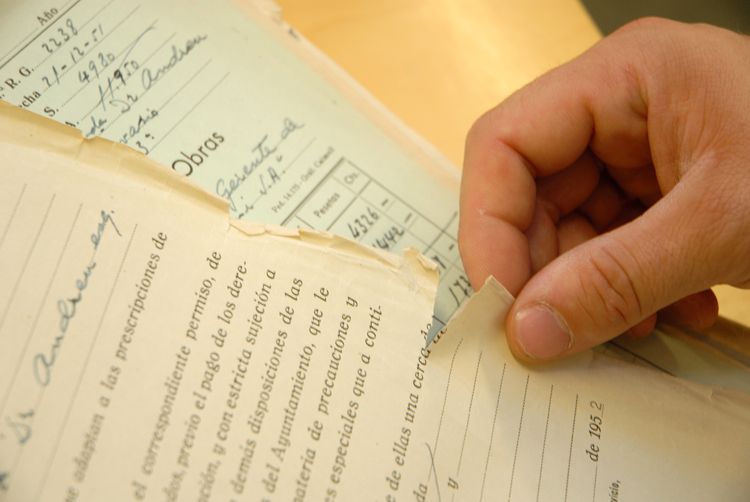 Año
R. G. 2238
cha 21-12-51
S. 4980
A. 11.950
da Dr Andreu
3º
Obras
Gerente de
S.A."
Pesetas Cts.
4326 -
1442 -
Dr Andreu esq.
se adaptan a las prescripciones de
el correspondiente permiso, de
dos, previo el pago de los dere-
ción, y con estricta sujeción a
demás disposiciones de las
del Ayuntamiento, que le
materia de precauciones y
s especiales que a conti-
e de ellas una cerca de
da
y
de 195 2